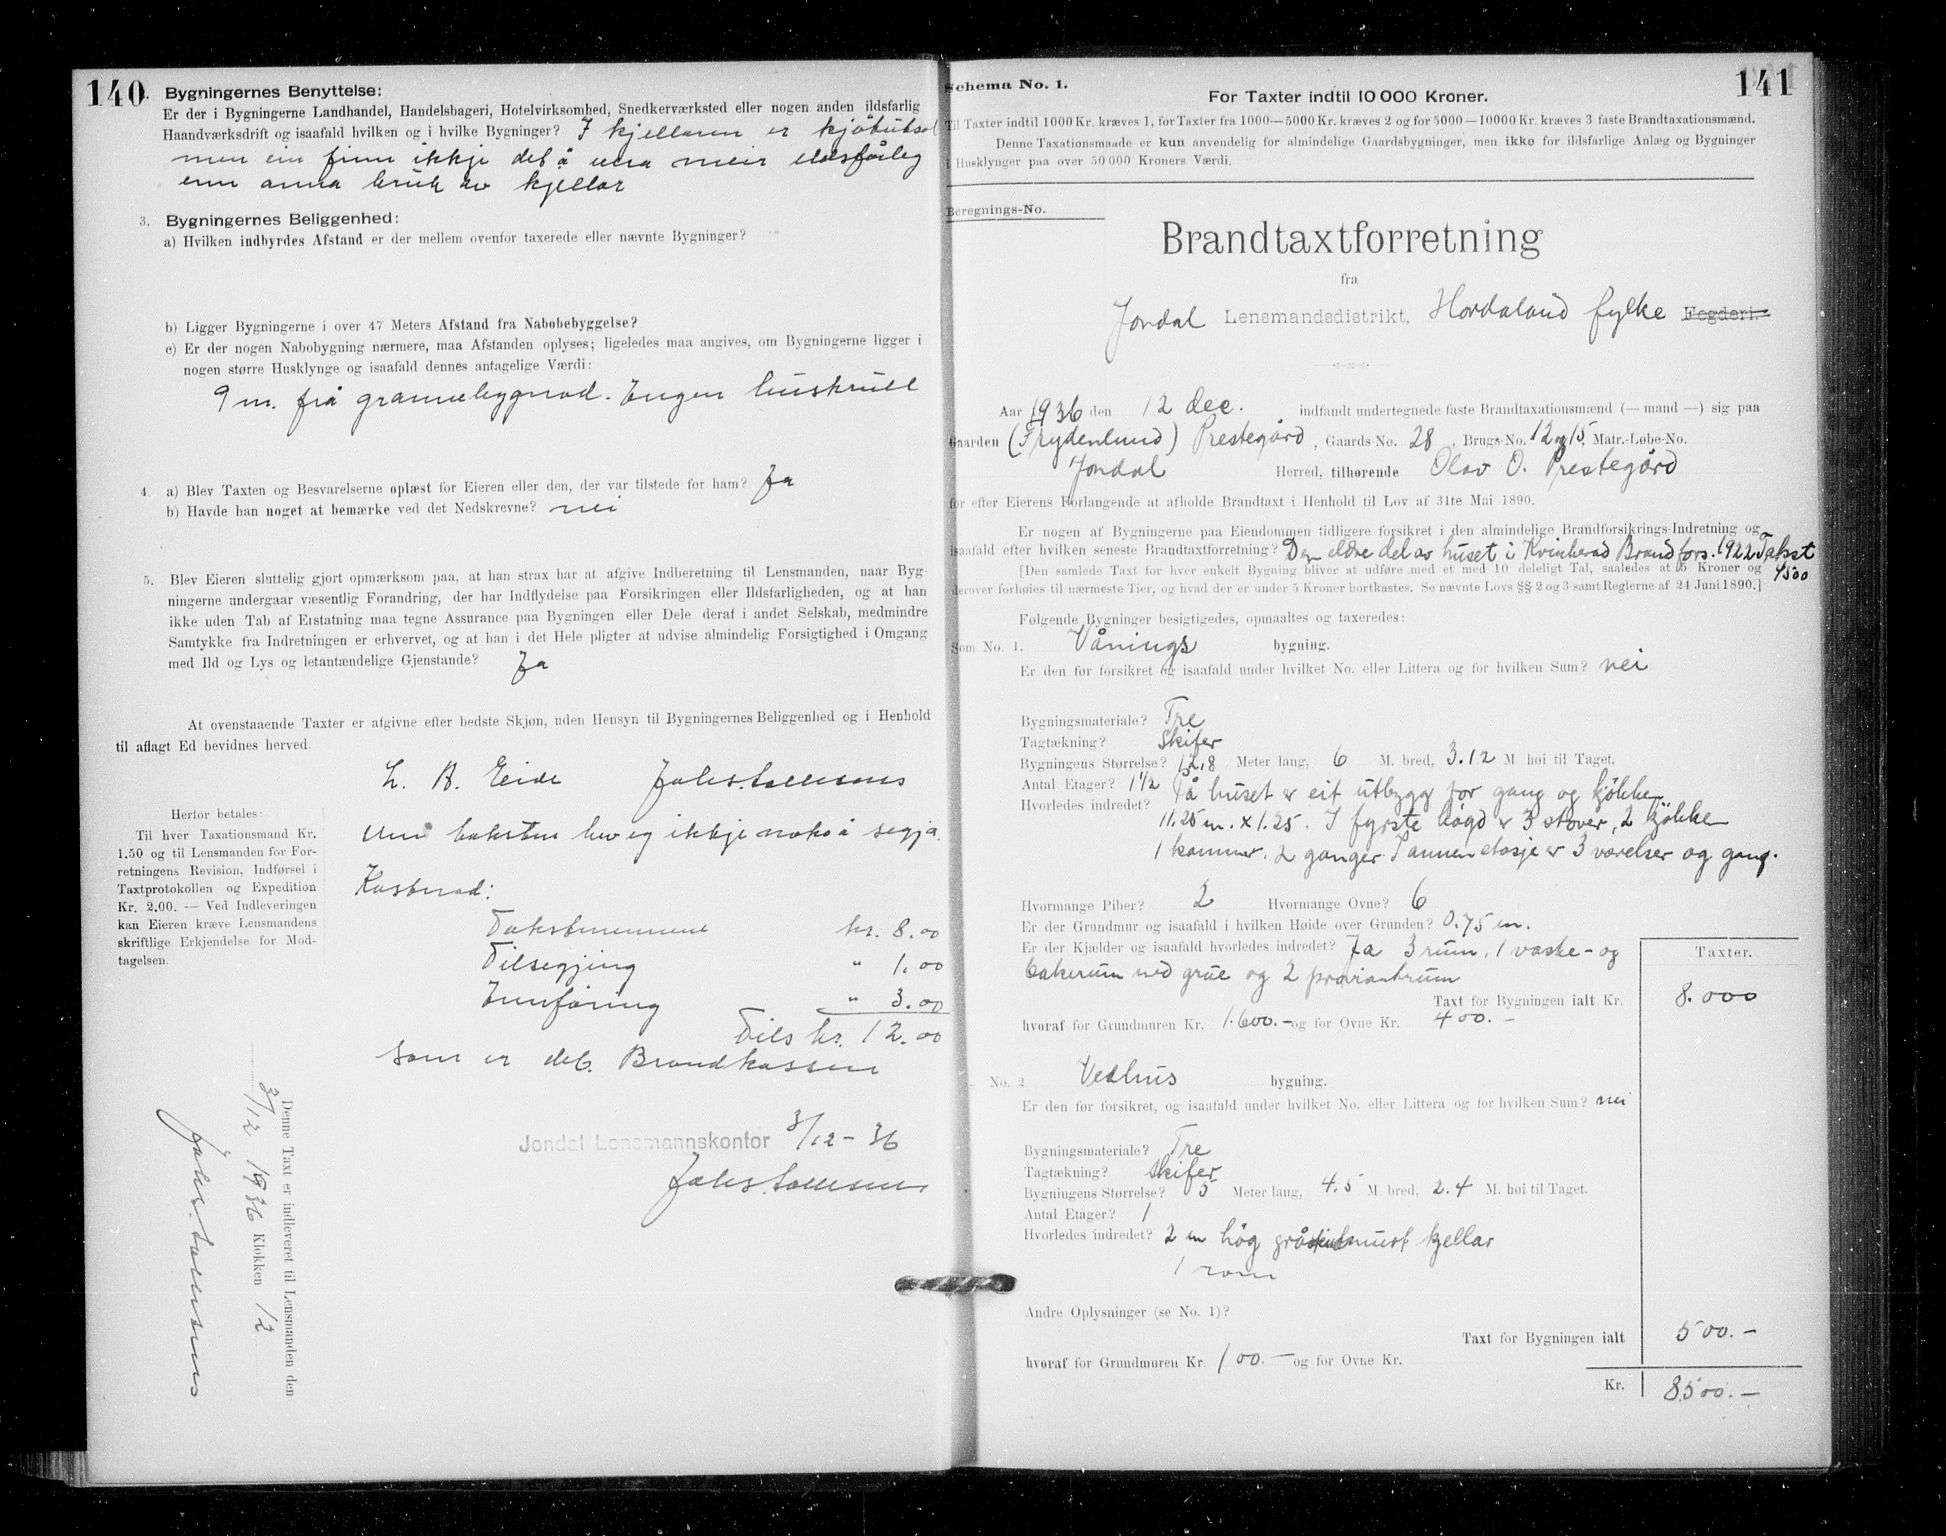 140
Bygningernes Benyttelse:
Er der i Bygningerne Landhandel, Handelsbageri, Hotelvirksomhed, Snedkerværksted eller nogen anden ildsfarlig
Haandværksdrift og isaafald hvilken og i hvilke Bygninger? I kjellaren er kjøtutsal
men ein finn ikkje det å vera meir eldsfårleg
enn anna bruk av kjellar
3. Bygningernes Beliggenhed:
a) Hvilken indbyrdes Afstand er der mellem ovenfor taxerede eller nævnte Bygninger?
b) Ligger Bygningerne i over 47 Meters Afstand fra Nabobebyggelse?
c) Er der nogen Nabobygning nærmere, maa Afstanden oplyses; ligeledes maa angives, om Bygningerne ligger i
nogen større Husklynge og isaafald dennes antagelige Værdi:
9 m. frå grannebygnad. Ingen huskrull
4. a) Blev Taxten og Besvarelserne oplæst for Eieren eller den, der var tilstede for ham? Ja
b) Havde han noget at bemærke ved det Nedskrevne? nei
5. Blev Eieren sluttelig gjort opmærksom paa, at han strax har at afgive Indberetning til Lensmanden, naar Byg-
ningerne undergaar væsentlig Forandring, der har Indflydelse paa Forsikringen eller Ildsfarligheden, og at han
ikke uden Tab af Erstatning maa tegne Assurance paa Bygningen eller Dele deraf i andet Selskab, medmindre
Samtykke fra Indretningen er erhvervet, og at han i det Hele pligter at udvise almindelig Forsigtighed i Omgang
med Ild og Lys og letantændelige Gjenstande? Ja
At ovenstaaende Taxter er afgivne efter bedste Skjøn, uden Hensyn til Bygningernes Beliggenhed og i Henhold
til aflagt Ed bevidnes herved.
L. B. Eide
Um taksten hev eg ikkje noko å segja.
Herfor betales:
Til hver Taxationsmand Kr.
1.50 og til Lensmanden for For-
retningens Revision, Indførsel i
Taxtprotokollen og Expedition
Kr. 2.00. — Ved Indleveringen
kan Eieren kræve Lensmandens
skriftlige Erkjendelse for Mod-
tagelsen.
Kostnad:
Takstmennene kr. 8.00
Tilsegjing " 1.00
Innføring " 3.00
Tils kr. 12.00
som er deb. Brandkassen
Jondal Lensmannskontor 3/12-36
Denne Taxt er indleveret til Lensmanden den
3/12 1936 Klokken 12
141
Schema No. 1.
For Taxter indtil 10 000 Kroner.
Til Taxter indtil 1000 Kr. kræves 1, for Taxter fra 1000—5000 Kr. kræves 2 og for 5000—10000 Kr. kræves 3 faste Brandtaxationsmænd.
Denne Taxationsmaade er kun anvendelig for almindelige Gaardsbygninger, men ikke for ildsfarlige Anlæg og Bygninger
i Husklynger paa over 50 000 Kroners Værdi.
Beregnings-No.
Brandtaxtforretning
fra
Jondal Lensmandsdistrikt, Hordaland fylke Fogderi.
Aar 1936 den 12 dec. indfandt undertegnede faste Brandtaxationsmænd (— mand —) sig paa
Gaarden (Frydenlund) Prestegård, Gaards-No. 28, Brugs-No. 12 og 15. Matr.-Løbe-No.
Jondal Herred, tilhørende Olav O. Prestegård
for efter Eierens Forlangende at afholde Brandtaxt i Henhold til Lov af 31te Mai 1890.
Er nogen af Bygningerne paa Eiendommen tidligere forsikret i den almindelige Brandforsikrings-Indretning og
isaafald efter hvilken seneste Brandtaxtforretning? Den eldre del av huset i Kvinherad Brandfors. 1922 Takst
4500
[Den samlede Taxt for hver enkelt Bygning bliver at udføre med et med 10 deleligt Tal, saaledes at 5 Kroner og
derover forhøies til nærmeste Tier, og hvad der er under 5 Kroner bortkastes. Se nævnte Lovs §§ 2 og 3 samt Reglerne af 24 Juni 1890.]
Følgende Bygninger besigtigedes, opmaaltes og taxeredes:
Som No. 1. Vånings bygning.
Er den før forsikret og isaafald under hvilket No. eller Littera og for hvilken Sum? nei
Bygningsmateriale? Tre
Tagtækning? Skifer
Bygningens Størrelse? 12.8 Meter lang, 6 M. bred, 3.12 M høi til Taget.
Antal Etager? 1 1/2
Hvorledes indredet? På huset er eit utbygg for gang og kjøkken
11.25 m. x 1.25. I fyrste høgd er 3 stover, 2 kjøkken
1 kammer. 2 ganger. I annen etasje er 3 værelser og gang.
Hvormange Piber? 2 Hvormange Ovne? 6
Er der Grundmur og isaafald i hvilken Høide over Grunden? 0.75 m.
Er der Kjælder og isaafald hvorledes indredet? Ja 3 rum. 1 vaske- og
bakerum med grue og 2 proviantrum
Taxter.
Taxt for Bygningen ialt Kr. 8.000
hvoraf for Grundmuren Kr. 1.600.- og for Ovne Kr. 400.-
No. 2 Vedhus bygning.
Er den før forsikret, og isaafald under hvilket No. eller Littera og for hvilken Sum? nei
Bygningsmateriale? Tre
Tagtækning? Skifer
Bygningens Størrelse? 5 Meter lang, 4.5 M. bred, 2.4 M. høi til Taget.
Antal Etager? 1
Hvorledes indredet? 2 m høg gråsteinsmurt kjellar
1 rom
Andre Oplysninger (se No. 1)?
Taxt for Bygningen ialt 500.-
hvoraf for Grundmuren Kr. 100.- og for Ovne Kr.
Kr. 8500.-